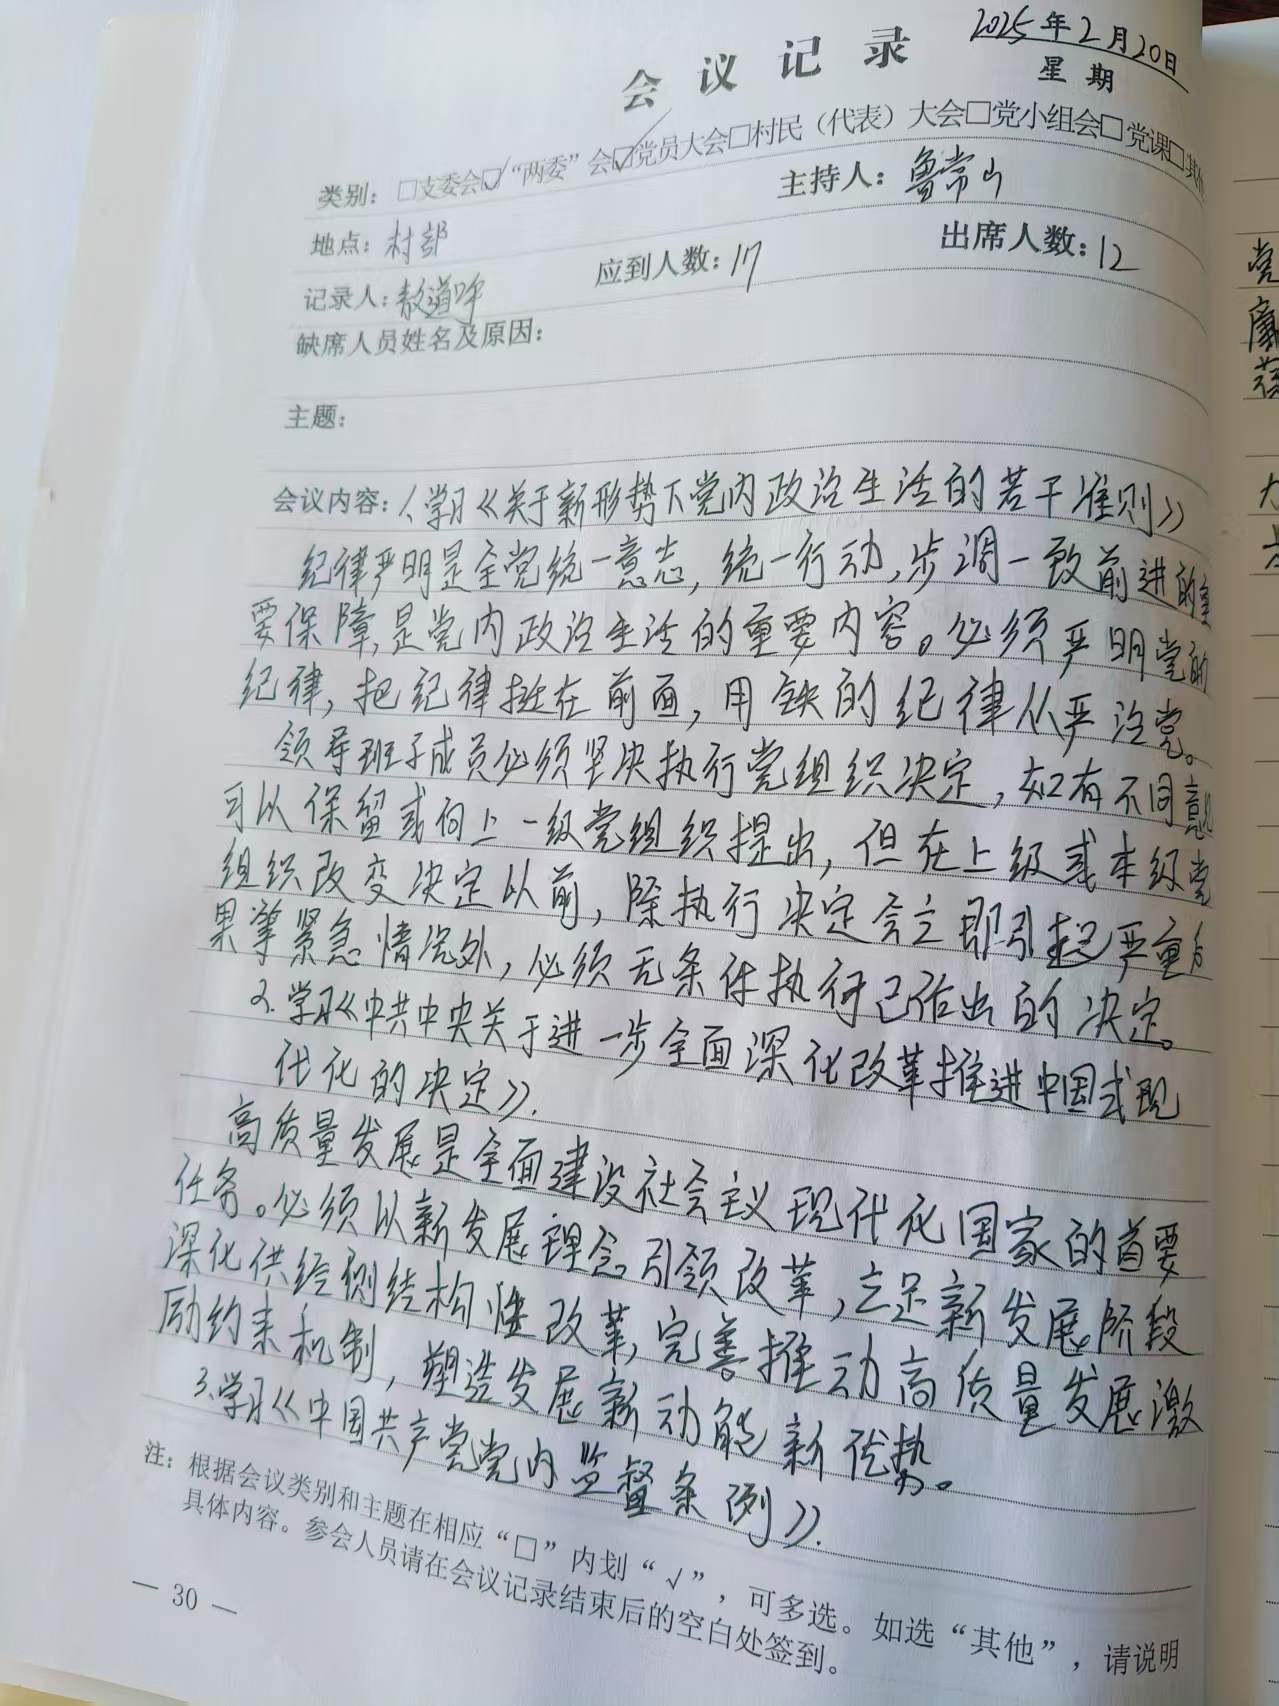 2025年2月20日
会议记录
星期
类别：□支委会☑“两委”会☑党员大会□村民（代表）大会□党小组会□党课□其他
地点：村部
主持人：鲁常山
记录人：敖道
应到人数：17
出席人数：12
缺席人员姓名及原因：
主题：
会议内容：1、学习《关于新形势下党内政治生活的若干准则》
纪律严明是全党统一意志，统一行动，步调一致前进的重
要保障，是党内政治生活的重要内容。必须严明党的
纪律，把纪律挺在前面，用铁的纪律从严治党。
领导班子成员必须坚决执行党组织决定，如有不同意见
可以保留或向上一级党组织提出，但在上级或本级党
组织改变决定以前，除执行决定会立即引起严重后
果等紧急情况外，必须无条件执行已作出的决定。
2.学习《中共中央关于进一步全面深化改革推进中国式现
代化的决定》.
高质量发展是全面建设社会主义现代化国家的首要
任务。必须以新发展理念引领改革，立足新发展阶段
深化供给侧结构性改革，完善推动高质量发展激
励约束机制，塑造发展新动能新优势。
3.学习《中国共产党党内监督条例》.
注：根据会议类别和主题在相应“□”内划“√”，可多选。如选“其他”，请说明
具体内容。参会人员请在会议记录结束后的空白处签到。
— 30 —
党
廉